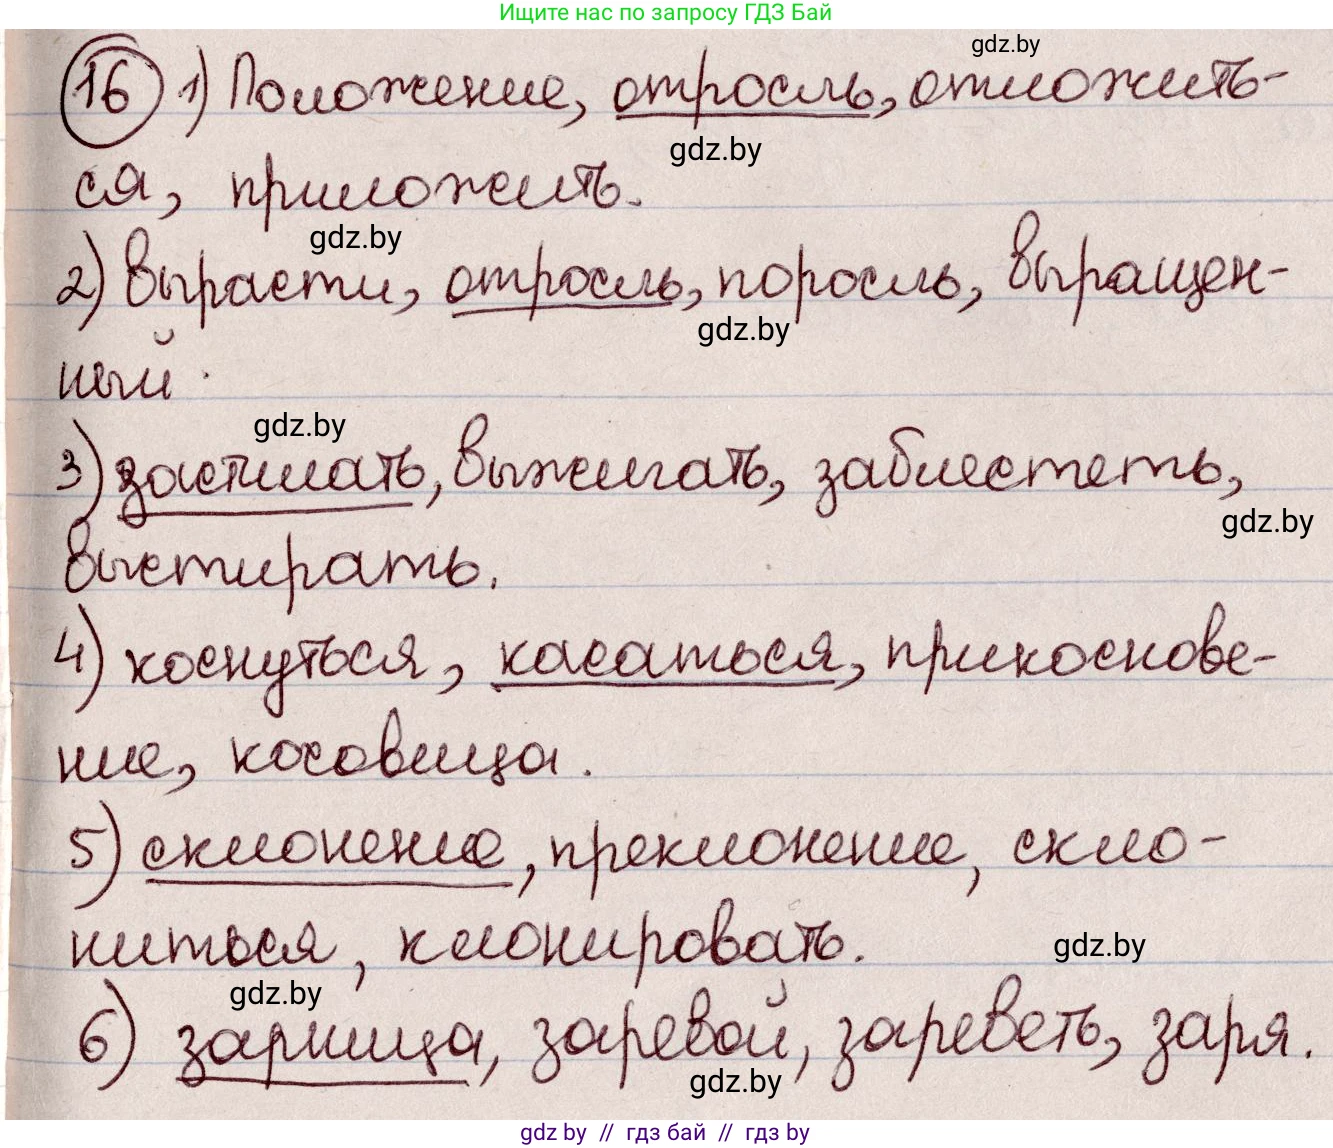 Ищите нас по запросу ГДЗ Бай
gdz.by
16 1) Положение, отросль, отложить-
gdz.by
ся, приложить.
gdz.by
2) вырасти, отросль, поросль, выращен-
gdz.by
ный.
gdz.by
3) застилать, выжигать, заблестеть,
gdz.by
выстирать.
4) коснуться, касаться, прикоснове-
ние, косовица.
5) склонение, преклонение, скло-
ниться, клонировать.
gdz.by
gdz.by
6) зарница, заревой, зареветь, заря.
gdz.by
gdz by // гдз бай // гдз by